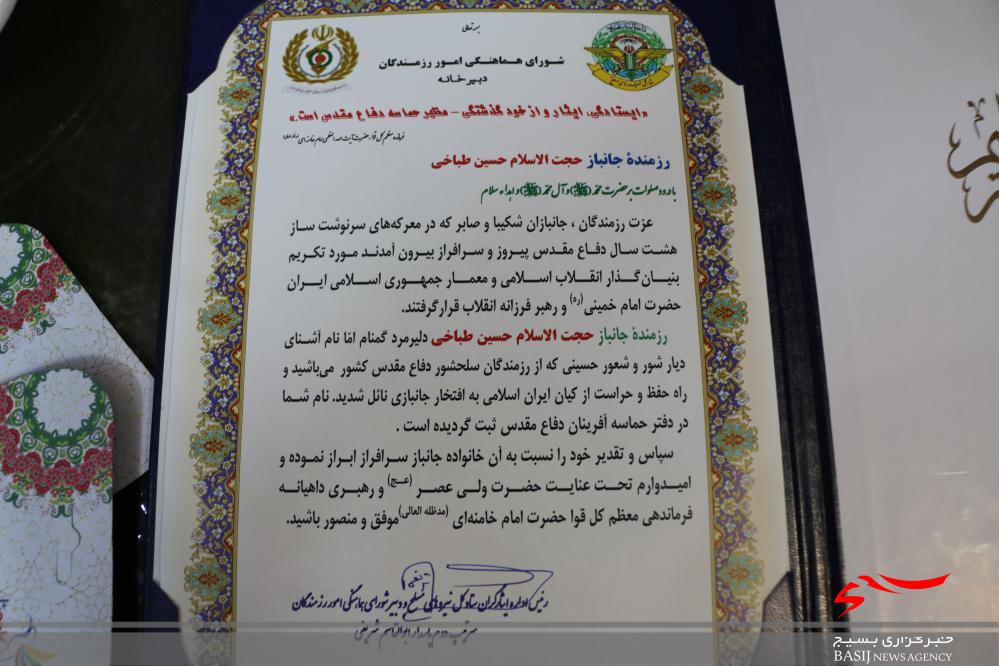 بسمه تعالی
شورای هماهنگی امور رزمندگان
دبیرخانه
«ایستادگی، ایثار و از خود گذشتگی – مظهر حماسه دفاع مقدس است.»
فرمانده معظم کل قوا، حضرت آیت الله العظمی امام خامنه‌ای
رزمندهٔ جانباز حجت الاسلام حسین طباخی
با درود و صلوات بر حضرت محمد (ﷺ) و آل محمد (ﷺ) و اهداء سلام
عزت رزمندگان ، جانبازان شکیبا و صابر که در معرکه‌های سرنوشت ساز
هشت سال دفاع مقدس پیروز و سرافراز بیرون آمدند مورد تکریم
بنیان‌گذار انقلاب اسلامی و معمار جمهوری اسلامی ایران
حضرت امام خمینی(ره) و رهبر فرزانه انقلاب قرار گرفتند.
رزمندهٔ جانباز حجت الاسلام حسین طباخی دلیرمرد گمنام امّا نام آشنای
دیار شور و شعور حسینی که از رزمندگان سلحشور دفاع مقدس کشور می‌باشید و
راه حفظ و حراست از کیان ایران اسلامی به افتخار جانبازی نائل شدید. نام شما
در دفتر حماسه آفرینان دفاع مقدس ثبت گردیده است .
سپاس و تقدیر خود را نسبت به آن خانواده جانباز سرافراز ابراز نموده و
امیدوارم تحت عنایت حضرت ولی عصر (عج) و رهبری داهیانه
فرماندهی معظم کل قوا حضرت امام خامنه‌ای (مدظله العالی) موفق و منصور باشید.
رئیس اداره ایثارگران ستاد کل نیروهای مسلح و دبیر شورای هماهنگی امور رزمندگان
سرتیپ دوم پاسدار ابوالقاسم شریفی
بسیج
خبرگزاری بسیج
BASIJ NEWS AGENCY